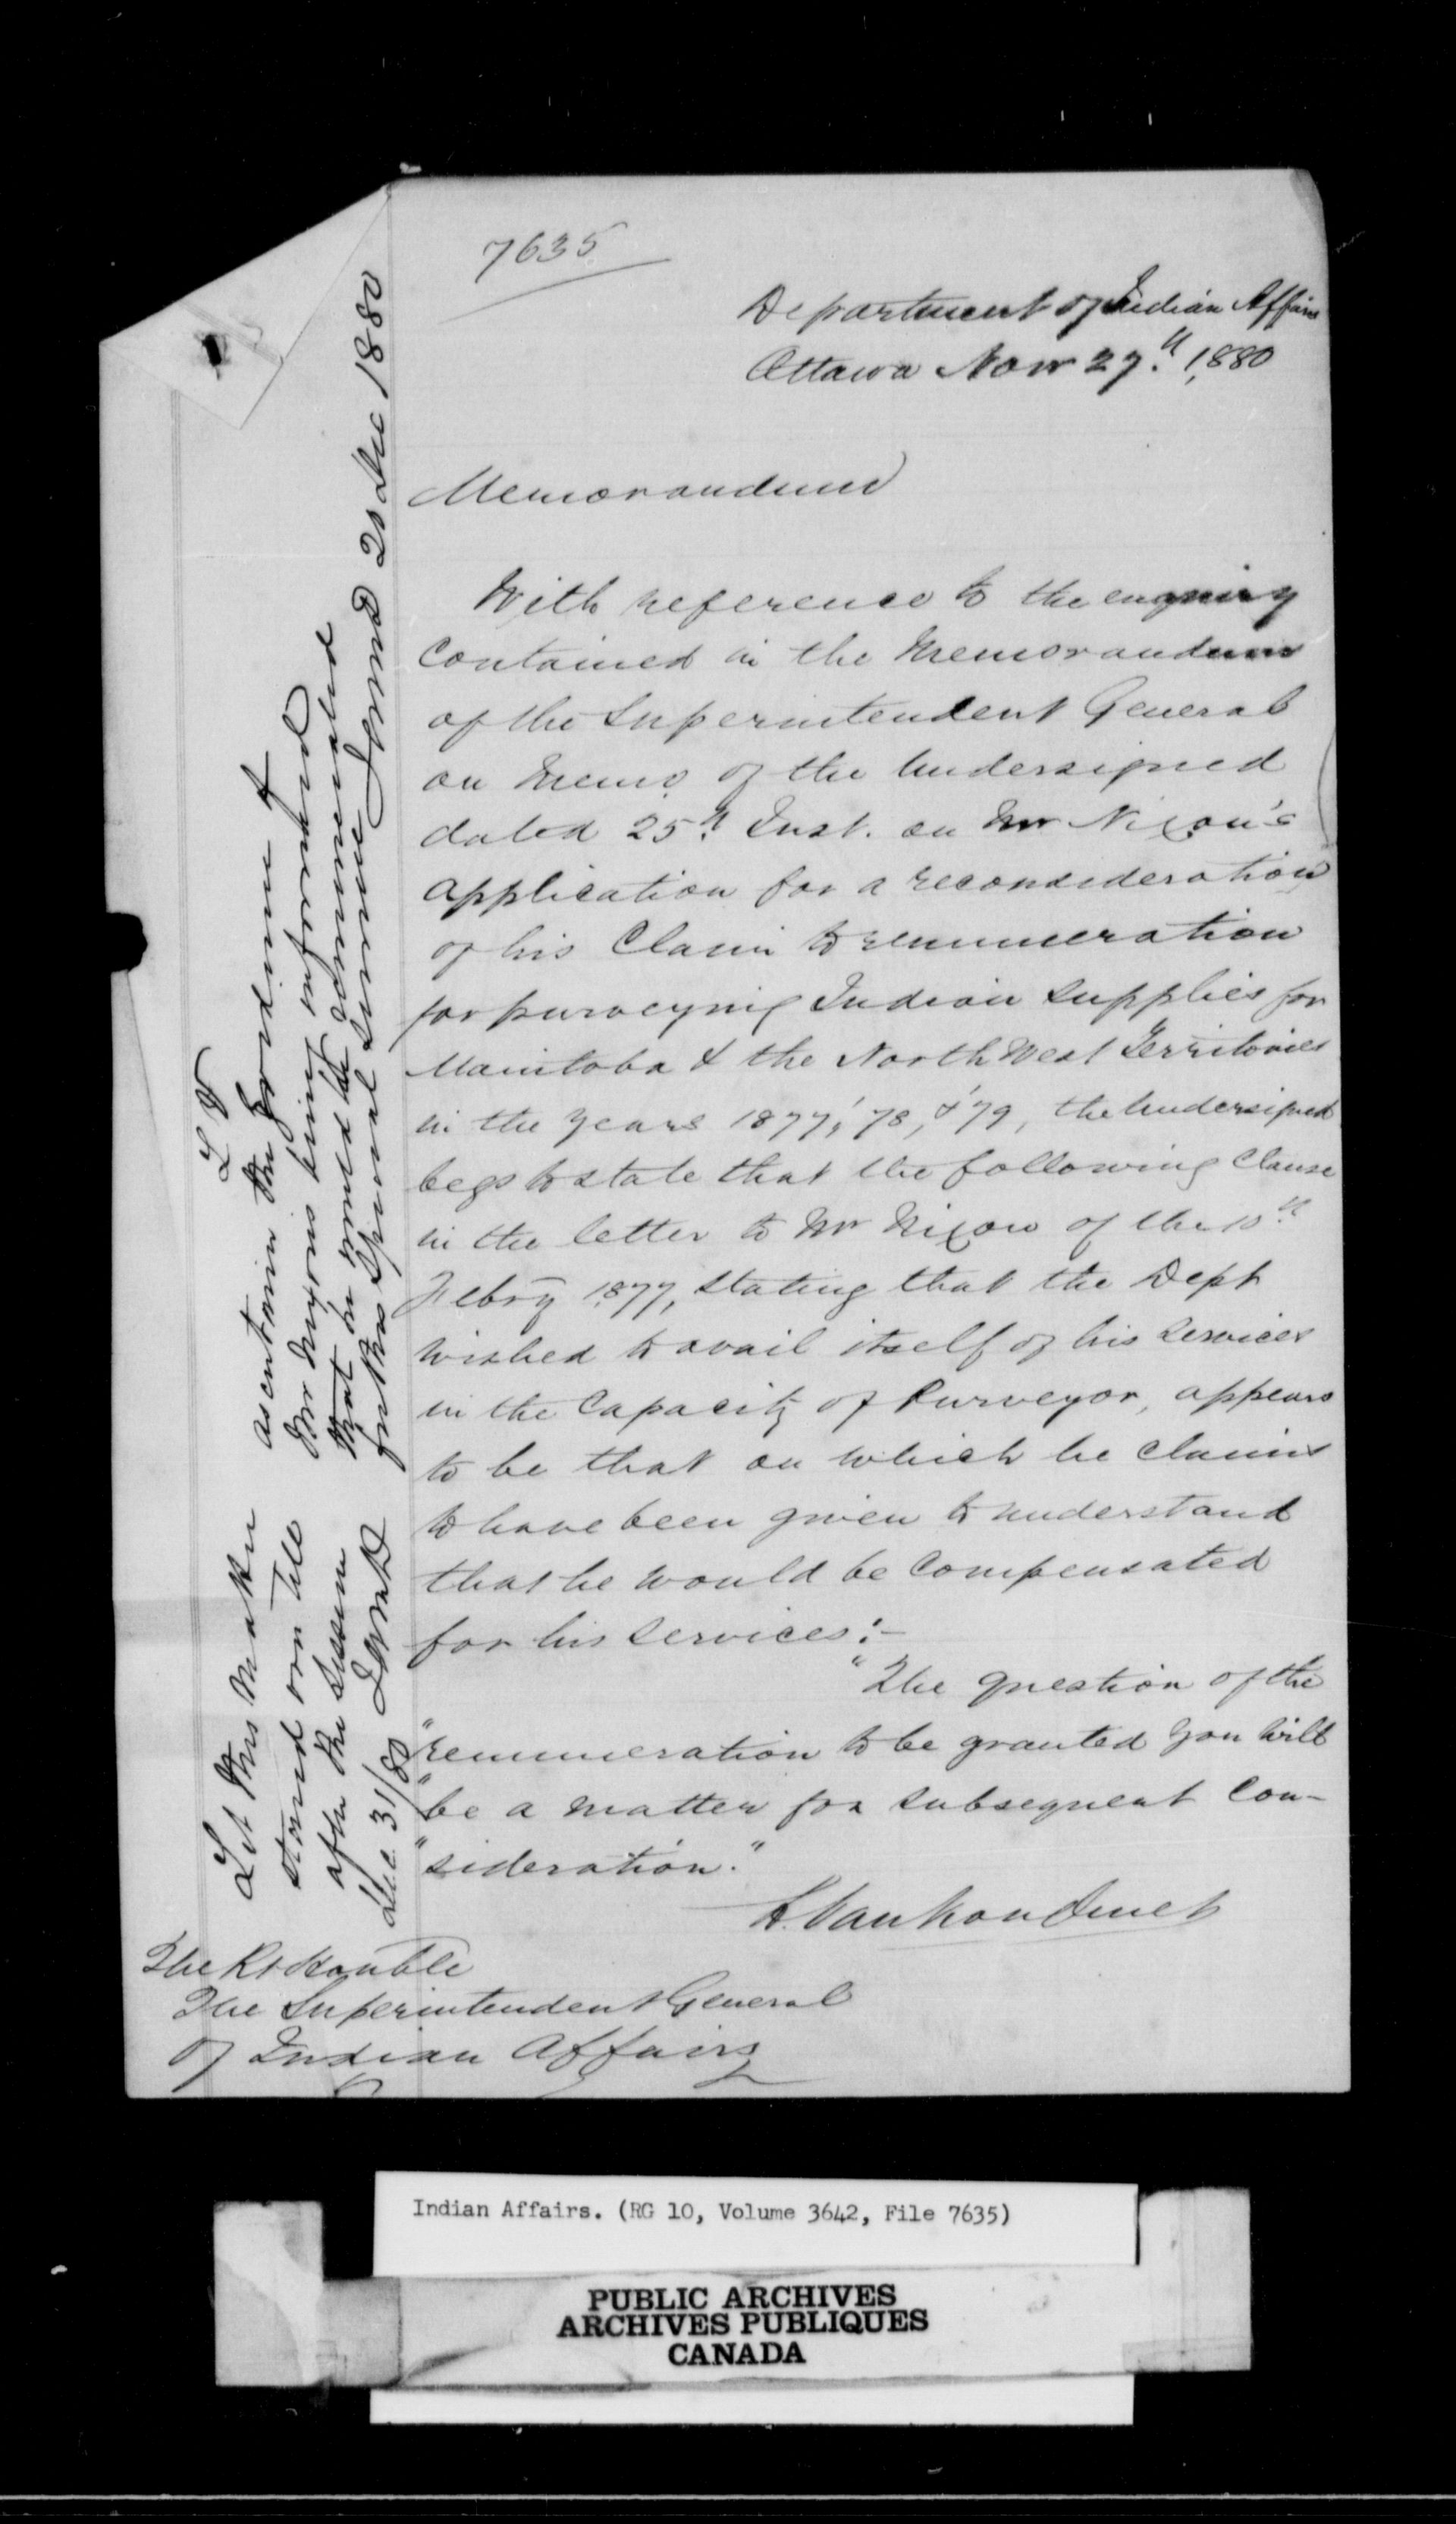 7635
Department of Indian Affairs
Ottawa Nov 27th. 1880
Memorandum
With reference to the enquiry
contained in the Memorandum
of the Superintendent General
on Memo of the Undersigned
dated 25th. Inst. on Mr Nixon's
application for a reconsideration
of his Claim to remuneration
for purveying Indian Supplies for
Manitoba & the North West Territories
in the years 1877, '78, & '79, the Undersigned
begs to state that the following Clause
in the letter to Mr Nixon of the 10th
Febry 1877, stating that the Dept
wished to avail itself of his services
in the Capacity of Purveyor, appears
to be that on which he claims
to have been given to understand
that he would be Compensated
for his services:-
"The question of the
"remuneration to be granted you will
"be a matter for subsequent con-
"sideration."
L. Vankoughnet
The Rt Honble
The Superintendent General
of Indian Affairs
ascertain the
Mr Nixons being informed
that he would be
further Special Service JAMD 20 Dec 1880
Let this matter
stand over till
after the Session
Dec. 31/80 JAMD
Indian Affairs. (RG 10, Volume 3642, File 7635)
PUBLIC ARCHIVES
ARCHIVES PUBLIQUES
CANADA